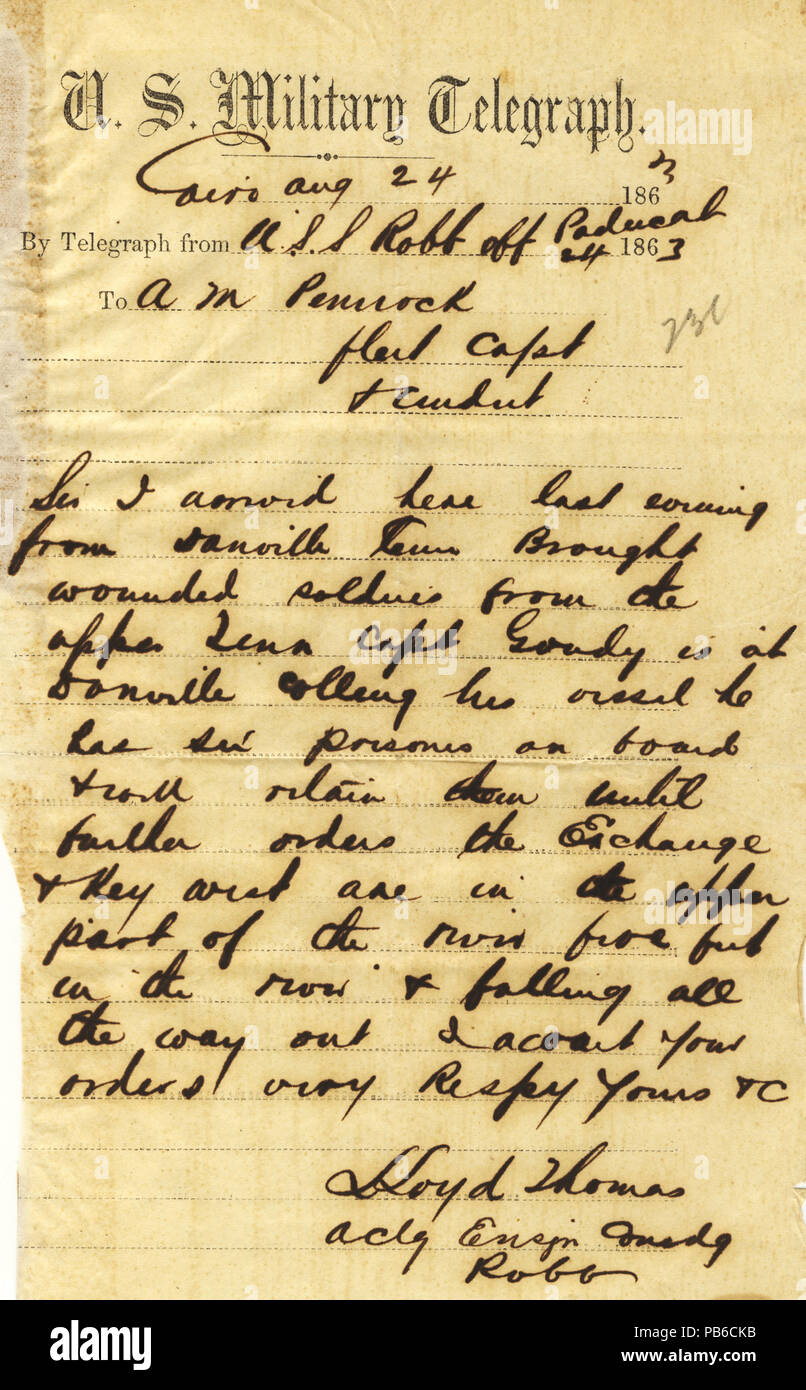 U. S. Military Telegraph.
Cairo Aug 24 1863
By Telegraph from U.S.S Robb off Paducah 24 1863
To A M Pennock
fleet Capt
& Comdnt
Sir I arrived here last evening
from Danville Tenn Brought
wounded soldiers from the
upper Tenn Capt Goudy is at
Danville coaling his vessel he
has six prisoners on board
& will retain them until
further orders the Exchange
& Key west are in the upper
part of the river five feet
in the river & falling all
the way out I await Your
orders very Respy Yours &C
Lloyd Thomas
actg Ensign Comdg
Robb
alamy
alamy
Image ID: PB6CKB
www.alamy.com